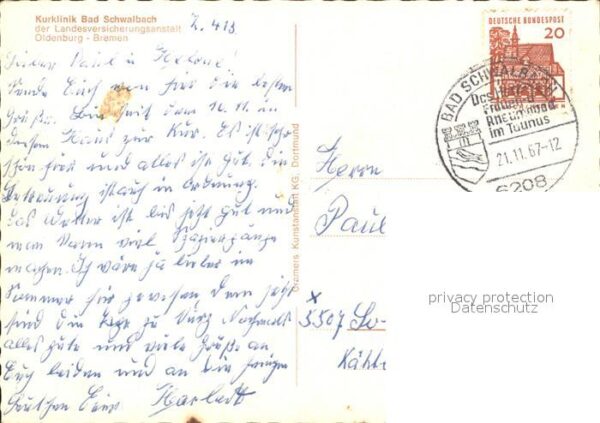 Kurklinik Bad Schwalbach
der Landesversicherungsanstalt
Oldenburg - Bremen
Z. 413
Lieber Paul u. Helene!
Sende Euch von hier die besten
Grüße. Bin seit dem 10. 11. in
diesem Haus zur Kur. Es ist sehr
schön hier und alles ist gut, die
Betreuung ist auch in Ordnung.
Das Wetter ist bis jetzt gut und
man kann viel Spaziergänge
machen. Ich wäre ja lieber im
Sommer hier gewesen denn jetzt
sind die Tage zu kurz. Nochmals
alles gute und viele Grüße an
Euch beiden und an die
Euer
Cramers Kunstanstalt KG, Dortmund
DEUTSCHE BUNDESPOST
20
BAD SCHWALBACH
Des
Frauen
Rheuma Bad
im Taunus
21.11.67-12
6208
Herrn
Paul
x
3507
privacy protection
Datenschutz